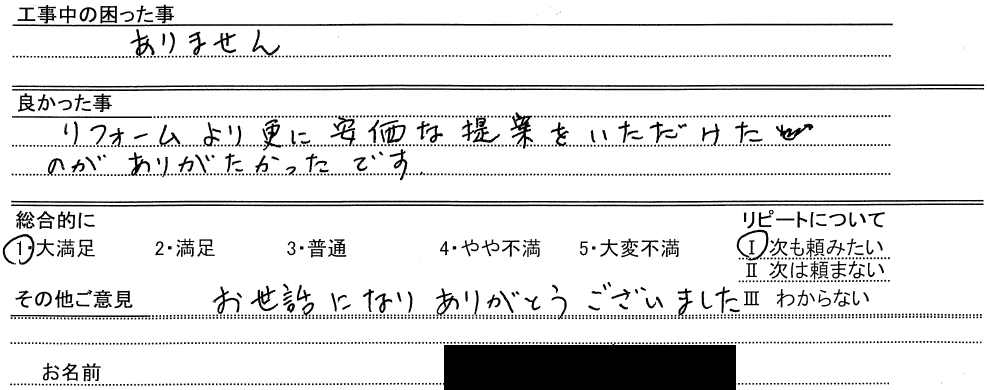 工事中の困った事
ありません
良かった事
リフォームより更に安価な提案をいただけた
のがありがたかったです.
総合的に リピートについて
1・大満足 2・満足 3・普通 4・やや不満 5・大変不満 Ⅰ 次も頼みたい
Ⅱ 次は頼まない
その他ご意見 お世話になりありがとうございました Ⅲ わからない
お名前